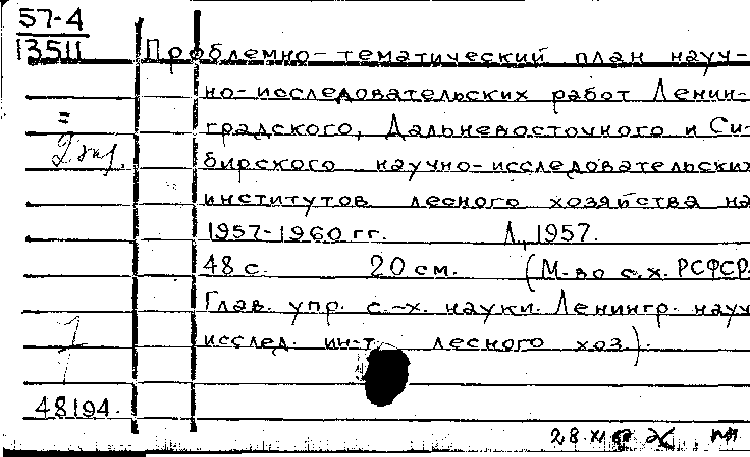 57-4
13511
Проблемно-тематический план науч-
но-исследовательских работ Ленин-
градского, Дальневосточного и Си-
2 экз.
бирского научно-исследовательских
институтов лесного хозяйства на
1957-1960 гг. Л., 1957.
48 с. 20 см. (М-во с.х. РСФСР.
Глав. упр. с.-х. науки. Ленингр. науч
исслед. ин-т. лесного хоз.).
1
48194.
28.XI